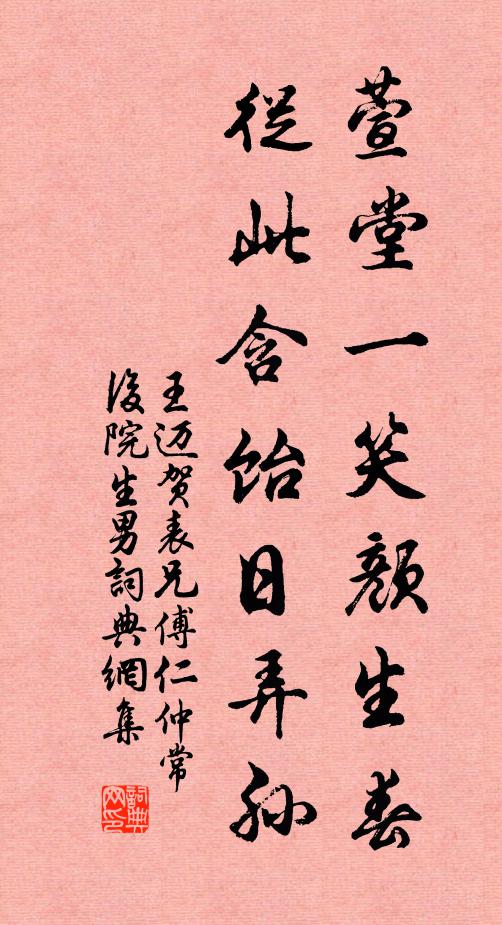 萱堂一笑顏生春
從此含飴日弄孫
王迈贺表兄傅仁仲常
後院生男詞典網集
詞典网印